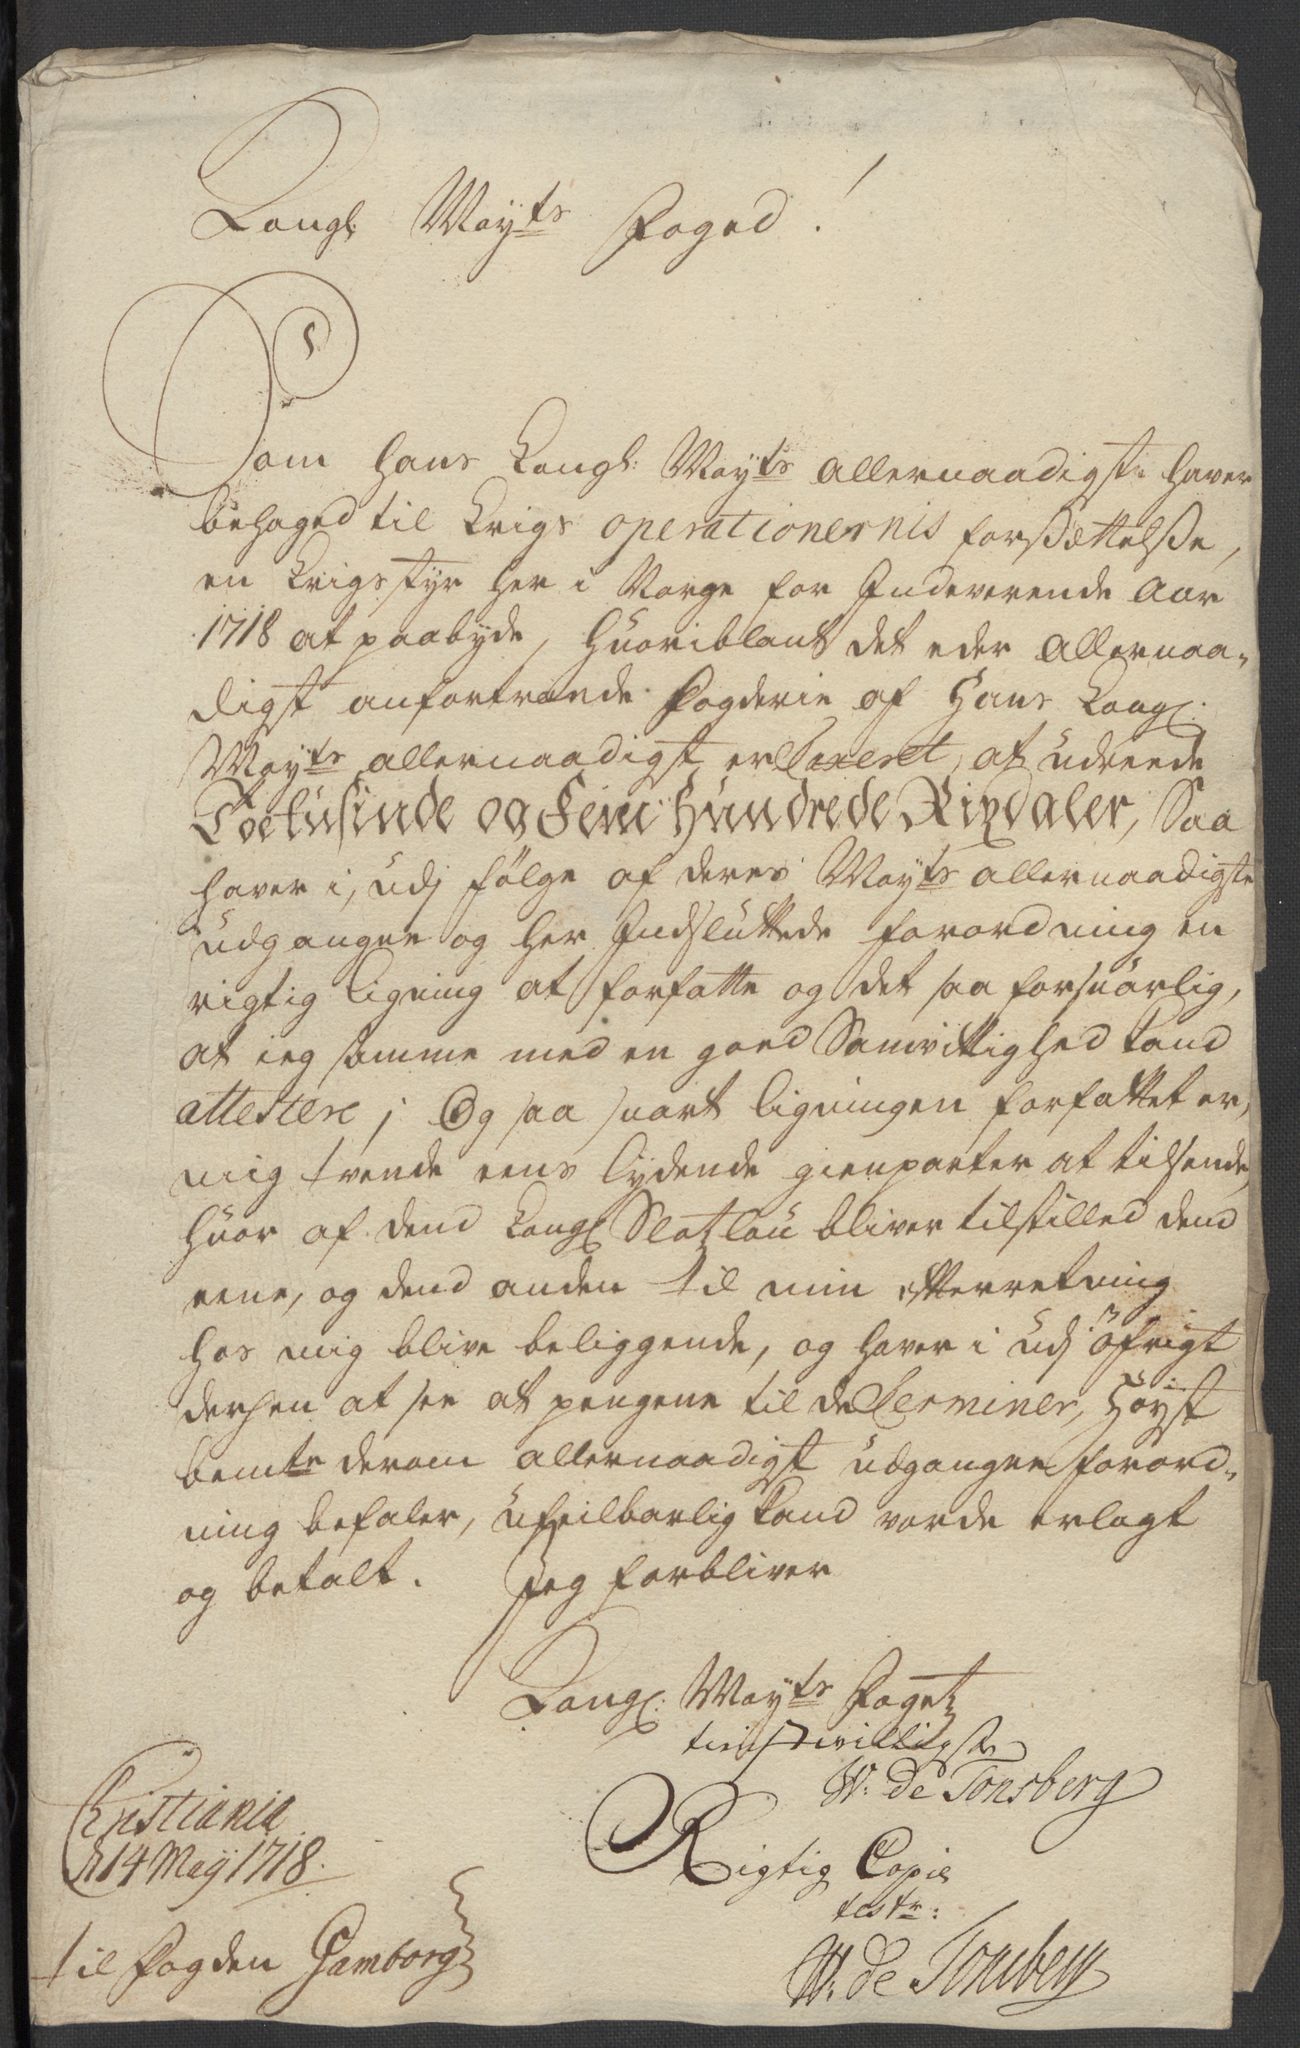 Kongl: Mayts Foged!
Som Hans Kongl: Mayts allernaadigst haver
behaged til Krigs operationernis forsættelsse,
en Krigsstyr her i Norge for Indeverende Aar
1718 at paabyde, huoriblant det eder allernaa-
digst anfortroede Fogderie af Hans Kongl:
Mayts allernaadigst er Taxeret, at udreede
Toetusinde og Fem Hundrede Rixdaler, Saa
haver i, udj følge af deres Mayts allernaadigste
udgangne og her Indsluttede forordning en
rigtig Ligning at forfatte og det saa forsuarlig,
at ieg samme med en goed Samvittighed kand
attestere; Og saa snart ligningen forfattet er,
mig tvende eens lydende gienparter at tilsende,
huor af dend Kongl Slotzlou bliver tilstilled dend
eene, og dend anden til min efterretning
hos mig blive beliggende, og haver i udj øfrigt
derhen at see at pengene til de Terminer, høyst
bemte derom allernaadigst udgangne forord-
ning befaler, ufeilbarlig kand vorde erlagt
og betalt. Jeg forbliver
Kongl: Mayts Fogetz
tienstwilligste
W. de Tonsberg
Christiania
d 14 Maij 1718.
Rigtig Copie
test:
til Fogden Gamborg
W. de Tonsberg